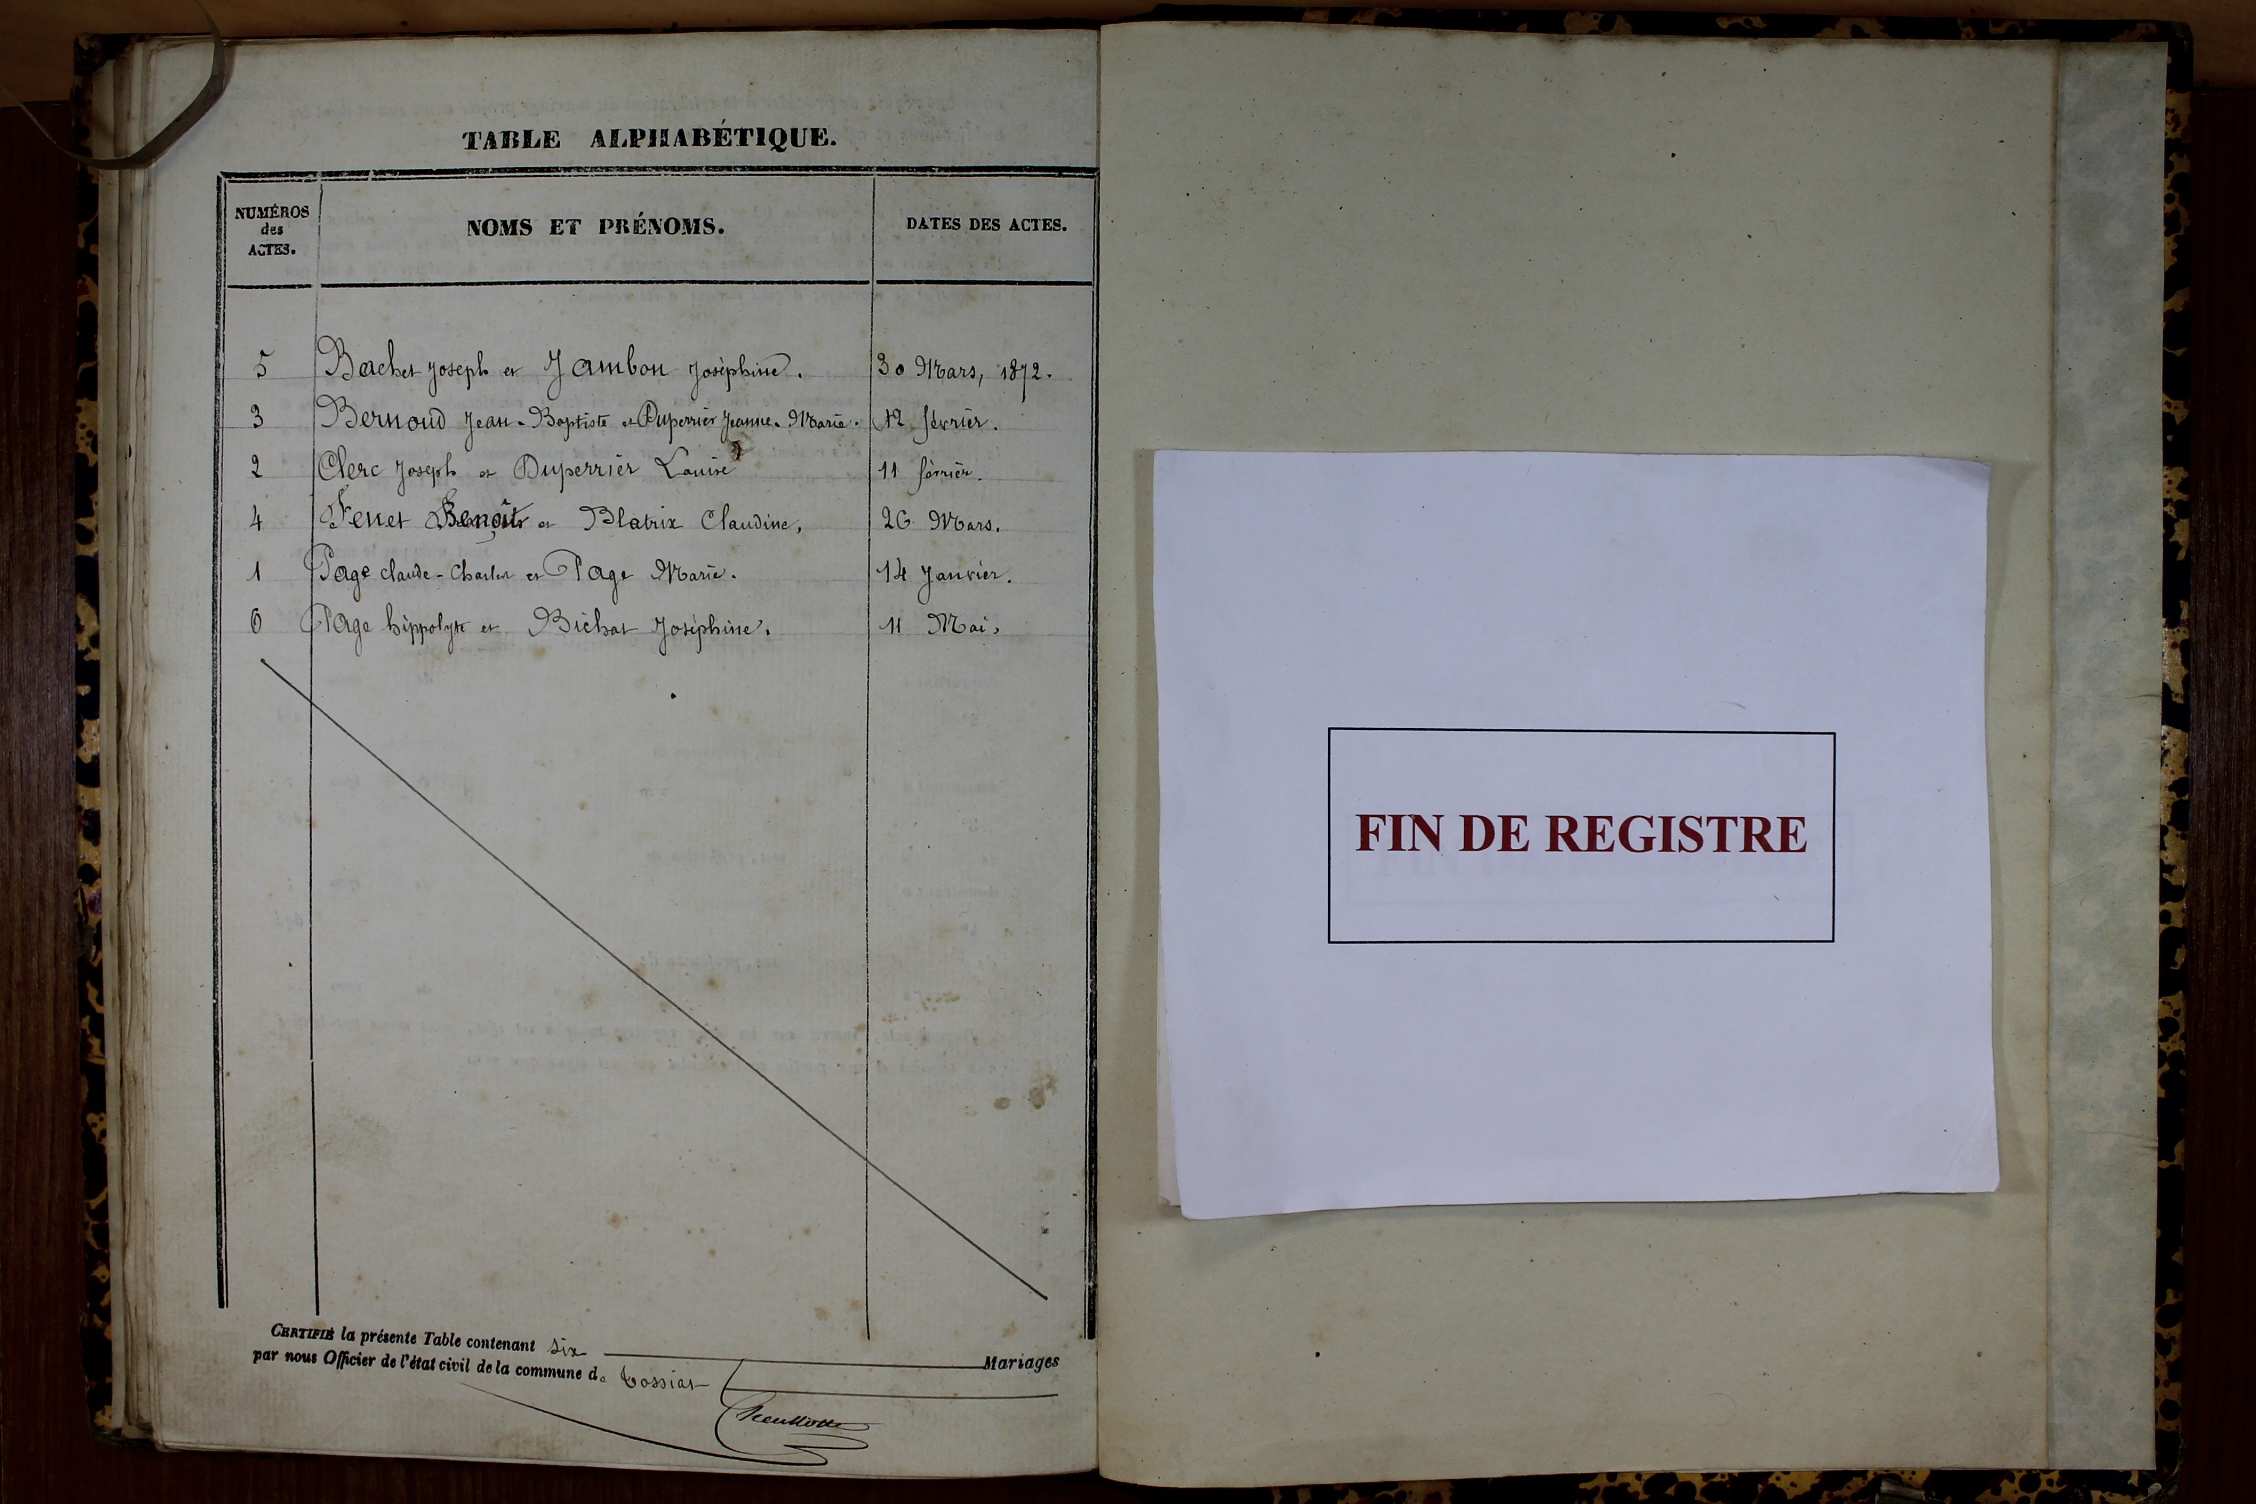 TABLE ALPHABÉTIQUE.
NUMÉROS
des
ACTES.
NOMS ET PRÉNOMS.
DATES DES ACTES.
5 Bachet Joseph et Jambon Joséphine. 30 Mars, 1872.
3 Bernoud Jean-Baptiste et Duperrier Jeanne-Marie. 12 février.
2 Clerc Joseph et Duperrier Louise 11 février.
4 Fenet Benoît et Blatrix Claudine, 26 Mars.
1 Page Claude-Charles et Page Marie. 14 Janvier.
6 Page hippolyte et Bichat Joséphine. 11 Mai.
CERTIFIÉ la présente Table contenant six Mariages
par nous Officier de l'état civil de la commune de Tossiat
FIN DE REGISTRE